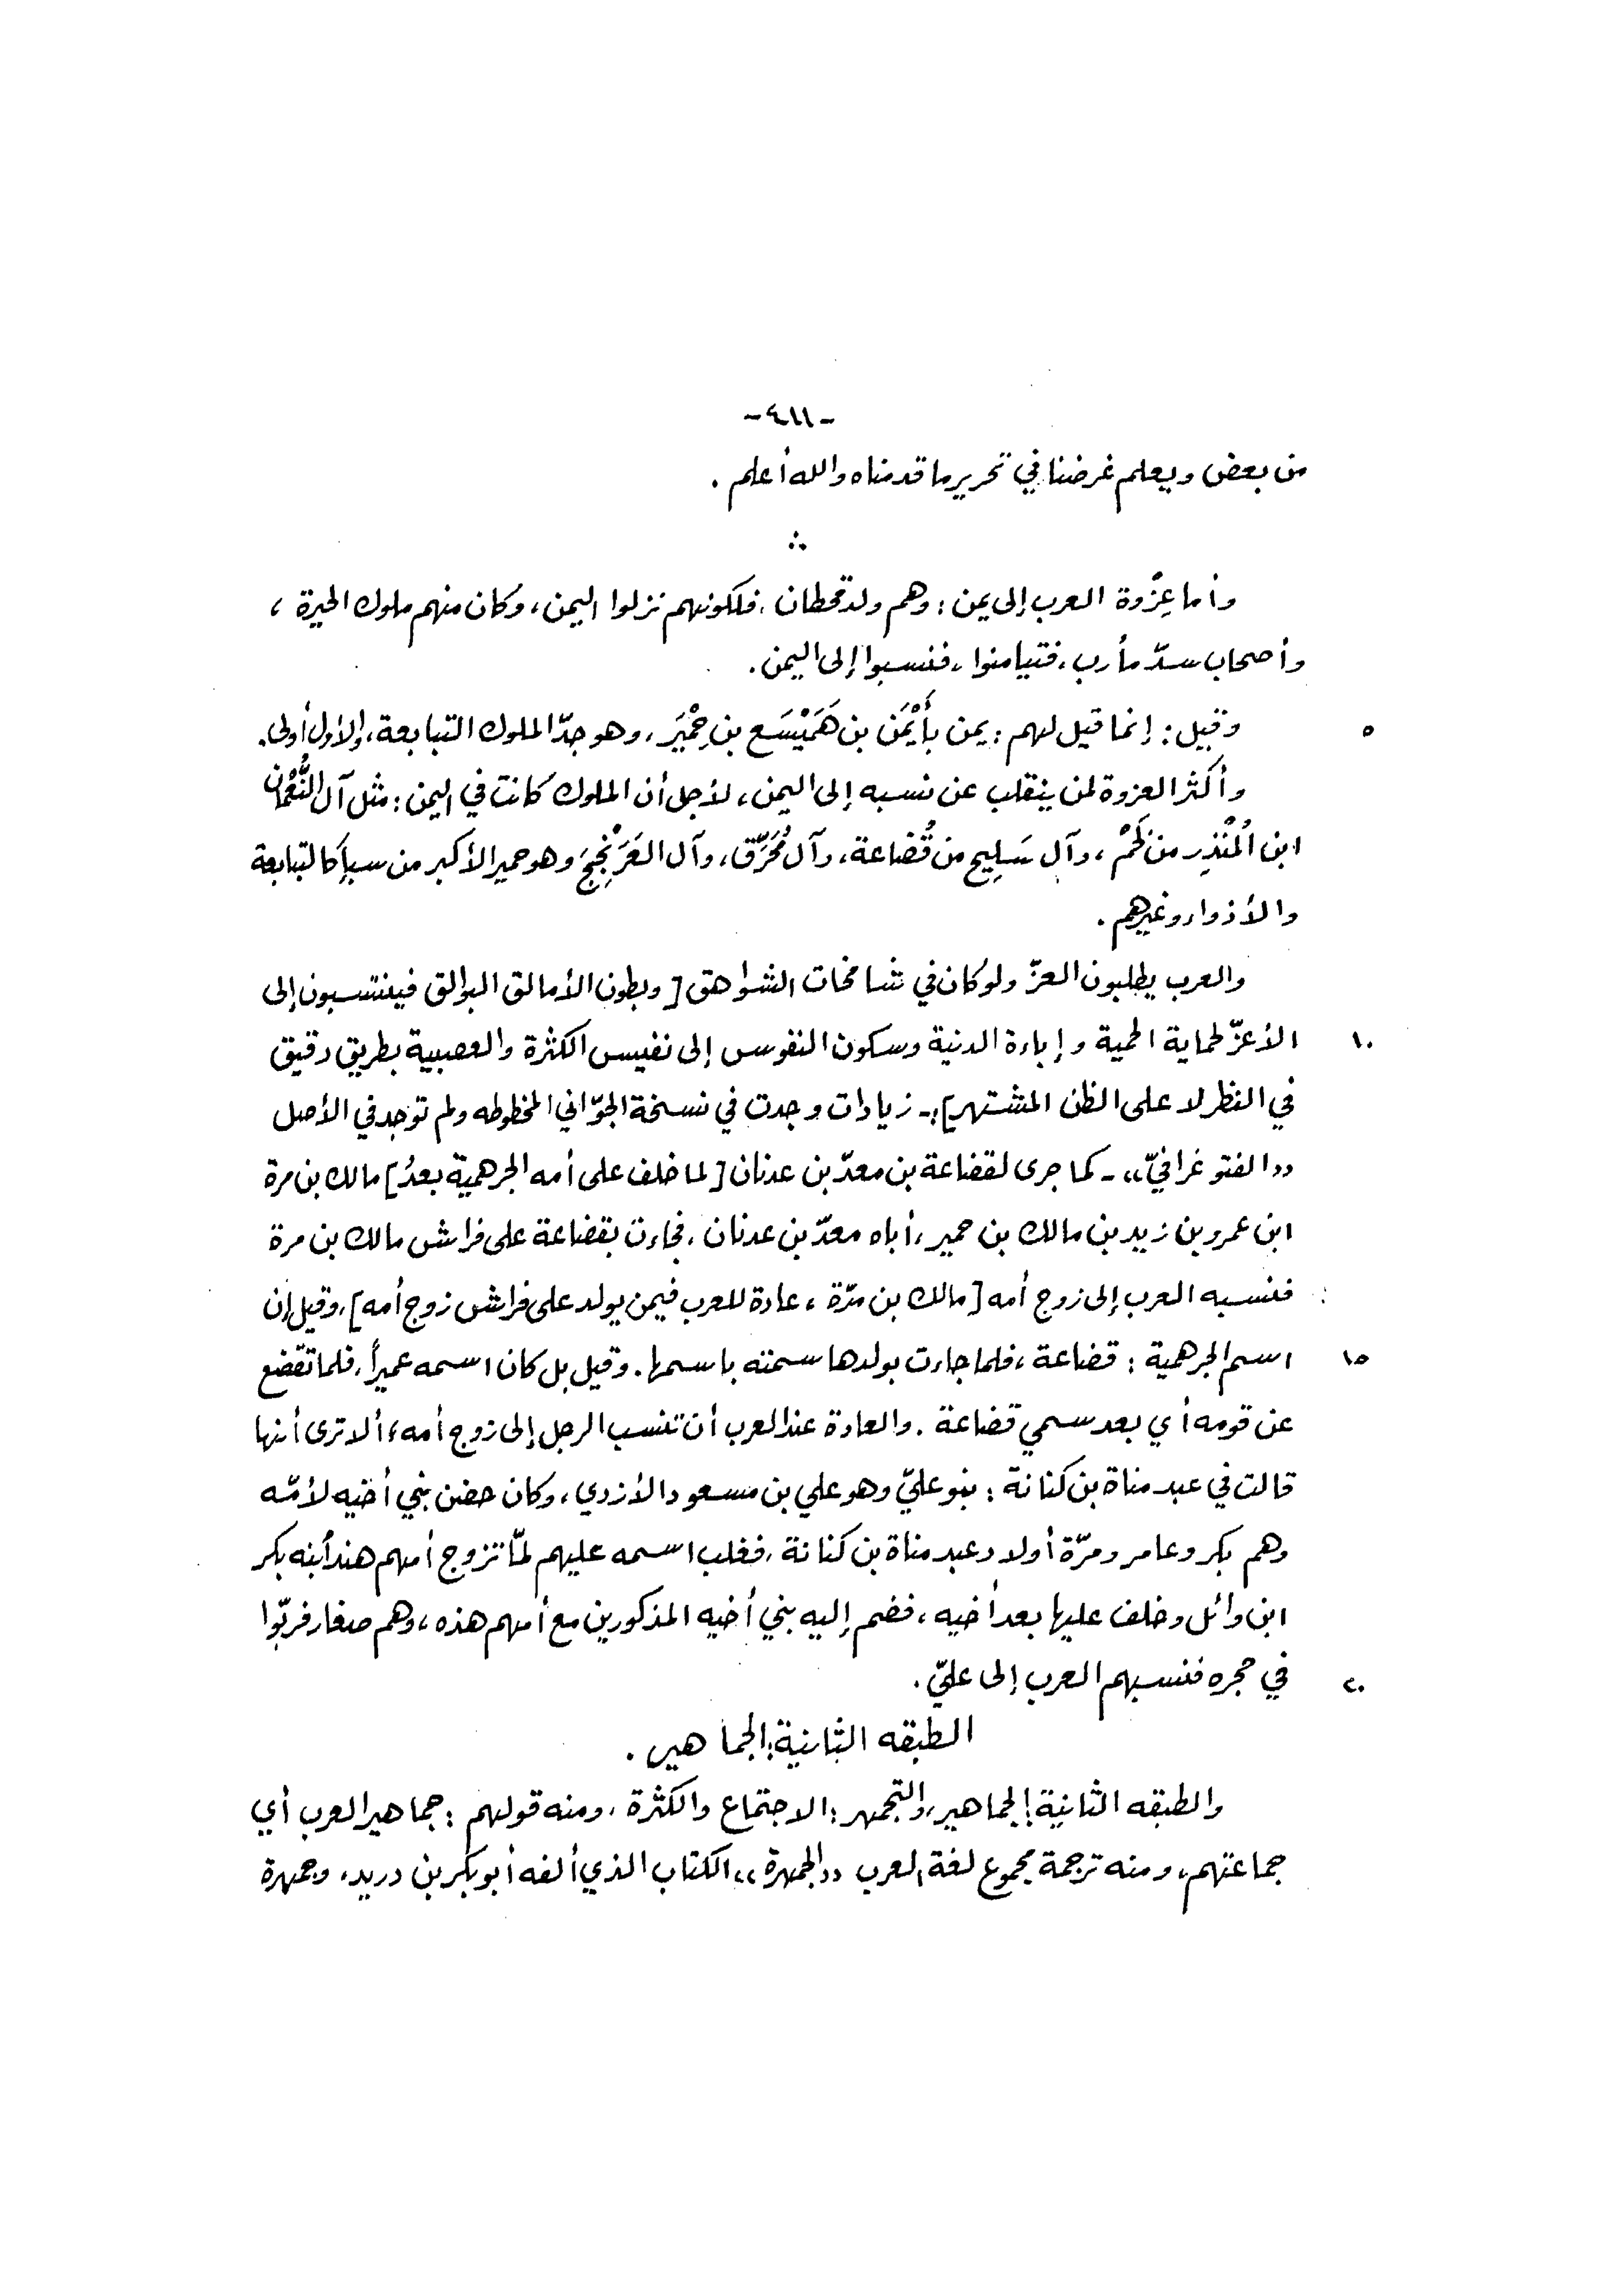 -٤١١-
من بعض ويعلم غرضنا في تحرير ما قدمناه والله أعلم .
∴
وأما عِزْوة العرب إلى يمن : وهم ولد قحطان ، فلكونهم نزلوا اليمن ، وكان منهم ملوك الحيرة ،
وأصحاب سدّ مأرب ، فتيامنوا ، فنسبوا إلى اليمن .
٥ وقيل : إنما قيل لهم : يمن بأَيْمَن بن هَمَيْسَع بن حِمْيَر ، وهو جدّ الملوك التبابعة ، والأول أولى .
وأكثر العزوة لمن ينقلب عن نسبه إلى اليمن ، لأجل أن الملوك كانت في اليمن : مثل آل النُّعْمان
ابن الُمْنْذِر من لَخْمْ ، وآل سَلِيح من قُضاعة ، وآل مُحَرِّق ، وآل العَرَنْجِجَ وهو حمير الأكبر من سبأ كالتبابعة
والأذواء وغيرهم .
والعرب يطلبون العزّ ولو كان في شامخات الشواهق [ وبطون الأمالق البوالق فينتسبون إلى
١٠ الأعزّ لحماية الحمية وإباءة الدنية وسكون النفوس إلى نفيس الكثرة والعصبية بطريق دقيق
في النظر لا على الظن المشتهر ] :- زيادات وجدت في نسخة الجوّاني المخطوطه ولم توجد في الأصل
,, الفتوغرافيّ ،، - كما جرى لقضاعة بن معدّ بن عدنان [ لما خلف على أمه الجرهمية بعدُ ] مالك بن مرة
ابن عمرو بن زيد بن مالك بن حمير ، أباه معدّ بن عدنان ، فجاءت بقضاعة على فراش مالك بن مرة
فنسبه العرب إلى زوج أمه [ مالك بن مرّة ، عادة للعرب فيمن يولد على فراش زوج أمه ] ، وقيل إن
١٥ اسم الجرهمية : قضاعة ، فلما جاءت بولدها سمته باسمها . وقيل بل كان اسمه عميراً ، فلما تقضع
عن قومه أي بعد سمي قضاعة . والعادة عند العرب أن تنسب الرجل إلى زوج أمه ، ألا ترى أنها
قالت في عبد مناة بن كنانة : بنو عليّ وهو علي بن مسعود الأزدي ، وكان حضن بني أخيه لأمّه
وهم بكر وعامر ومرّة أولاد عبد مناة بن كنانة ، فغلب اسمه عليهم لمّا تزوج أمهم هنداً بنه بكر
ابن وائل وخلف عليها بعد أخيه ، فضم إليه بني أخيه المذكورين مع أمهم هذه ، وهم صغار فربّوا
٢٠ في حجره فنسبهم العرب إلى عليّ .
الطبقه الثانية : الجماهير .
والطبقه الثانية : الجماهير ، والتجمهر : الاجتماع والكثرة ، ومنه قولهم : جماهير العرب أي
جماعتهم ، ومنه ترجمة مجموع لغة العرب ,, الجمهرة ،، الكتاب الذي ألفه أبو بكر بن دريد ، وجمهرة